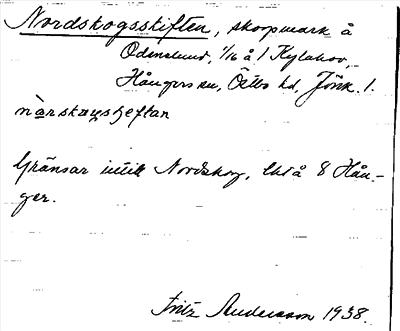 Nordskogsskiften, skogsmark å
Odenslund, 1/16 å 1 Kylahov,
Hångers sn, Östbo hd, Jönk. l.
nårskogsʃeftan
Gränsar intill Nordskog, lht å 8 Hån-
ger.
Fritz Andersson 1938.